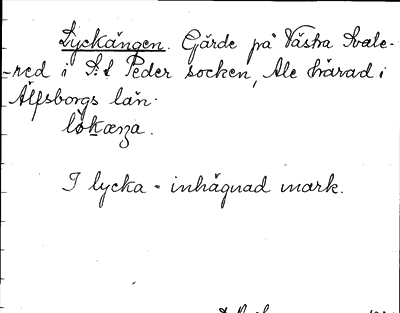 Lyckängen. Gärde på Västra Svale-
-red i S:t Peder socken, Ale härad i
Älfsborgs län.
I lycka = inhägnad mark.